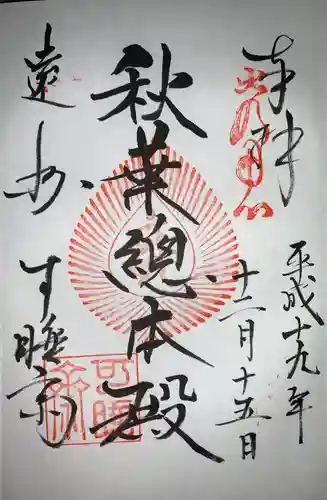 奉拝
平成十九年
十二月十五日
秋葉總本殿
遠州
可睡斎